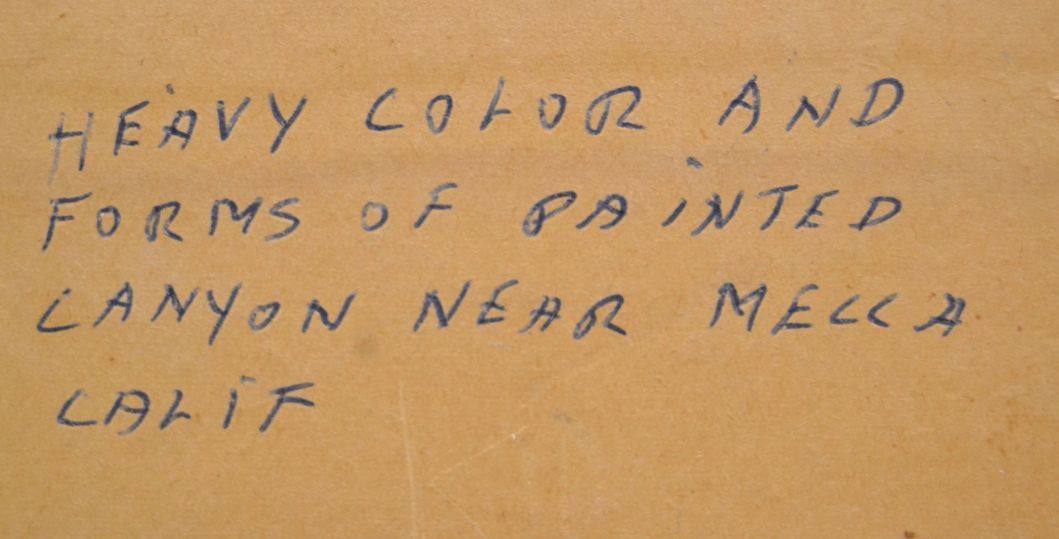 HEAVY COLOR AND
FORMS OF PAINTED
CANYON NEAR MECCA
CALIF